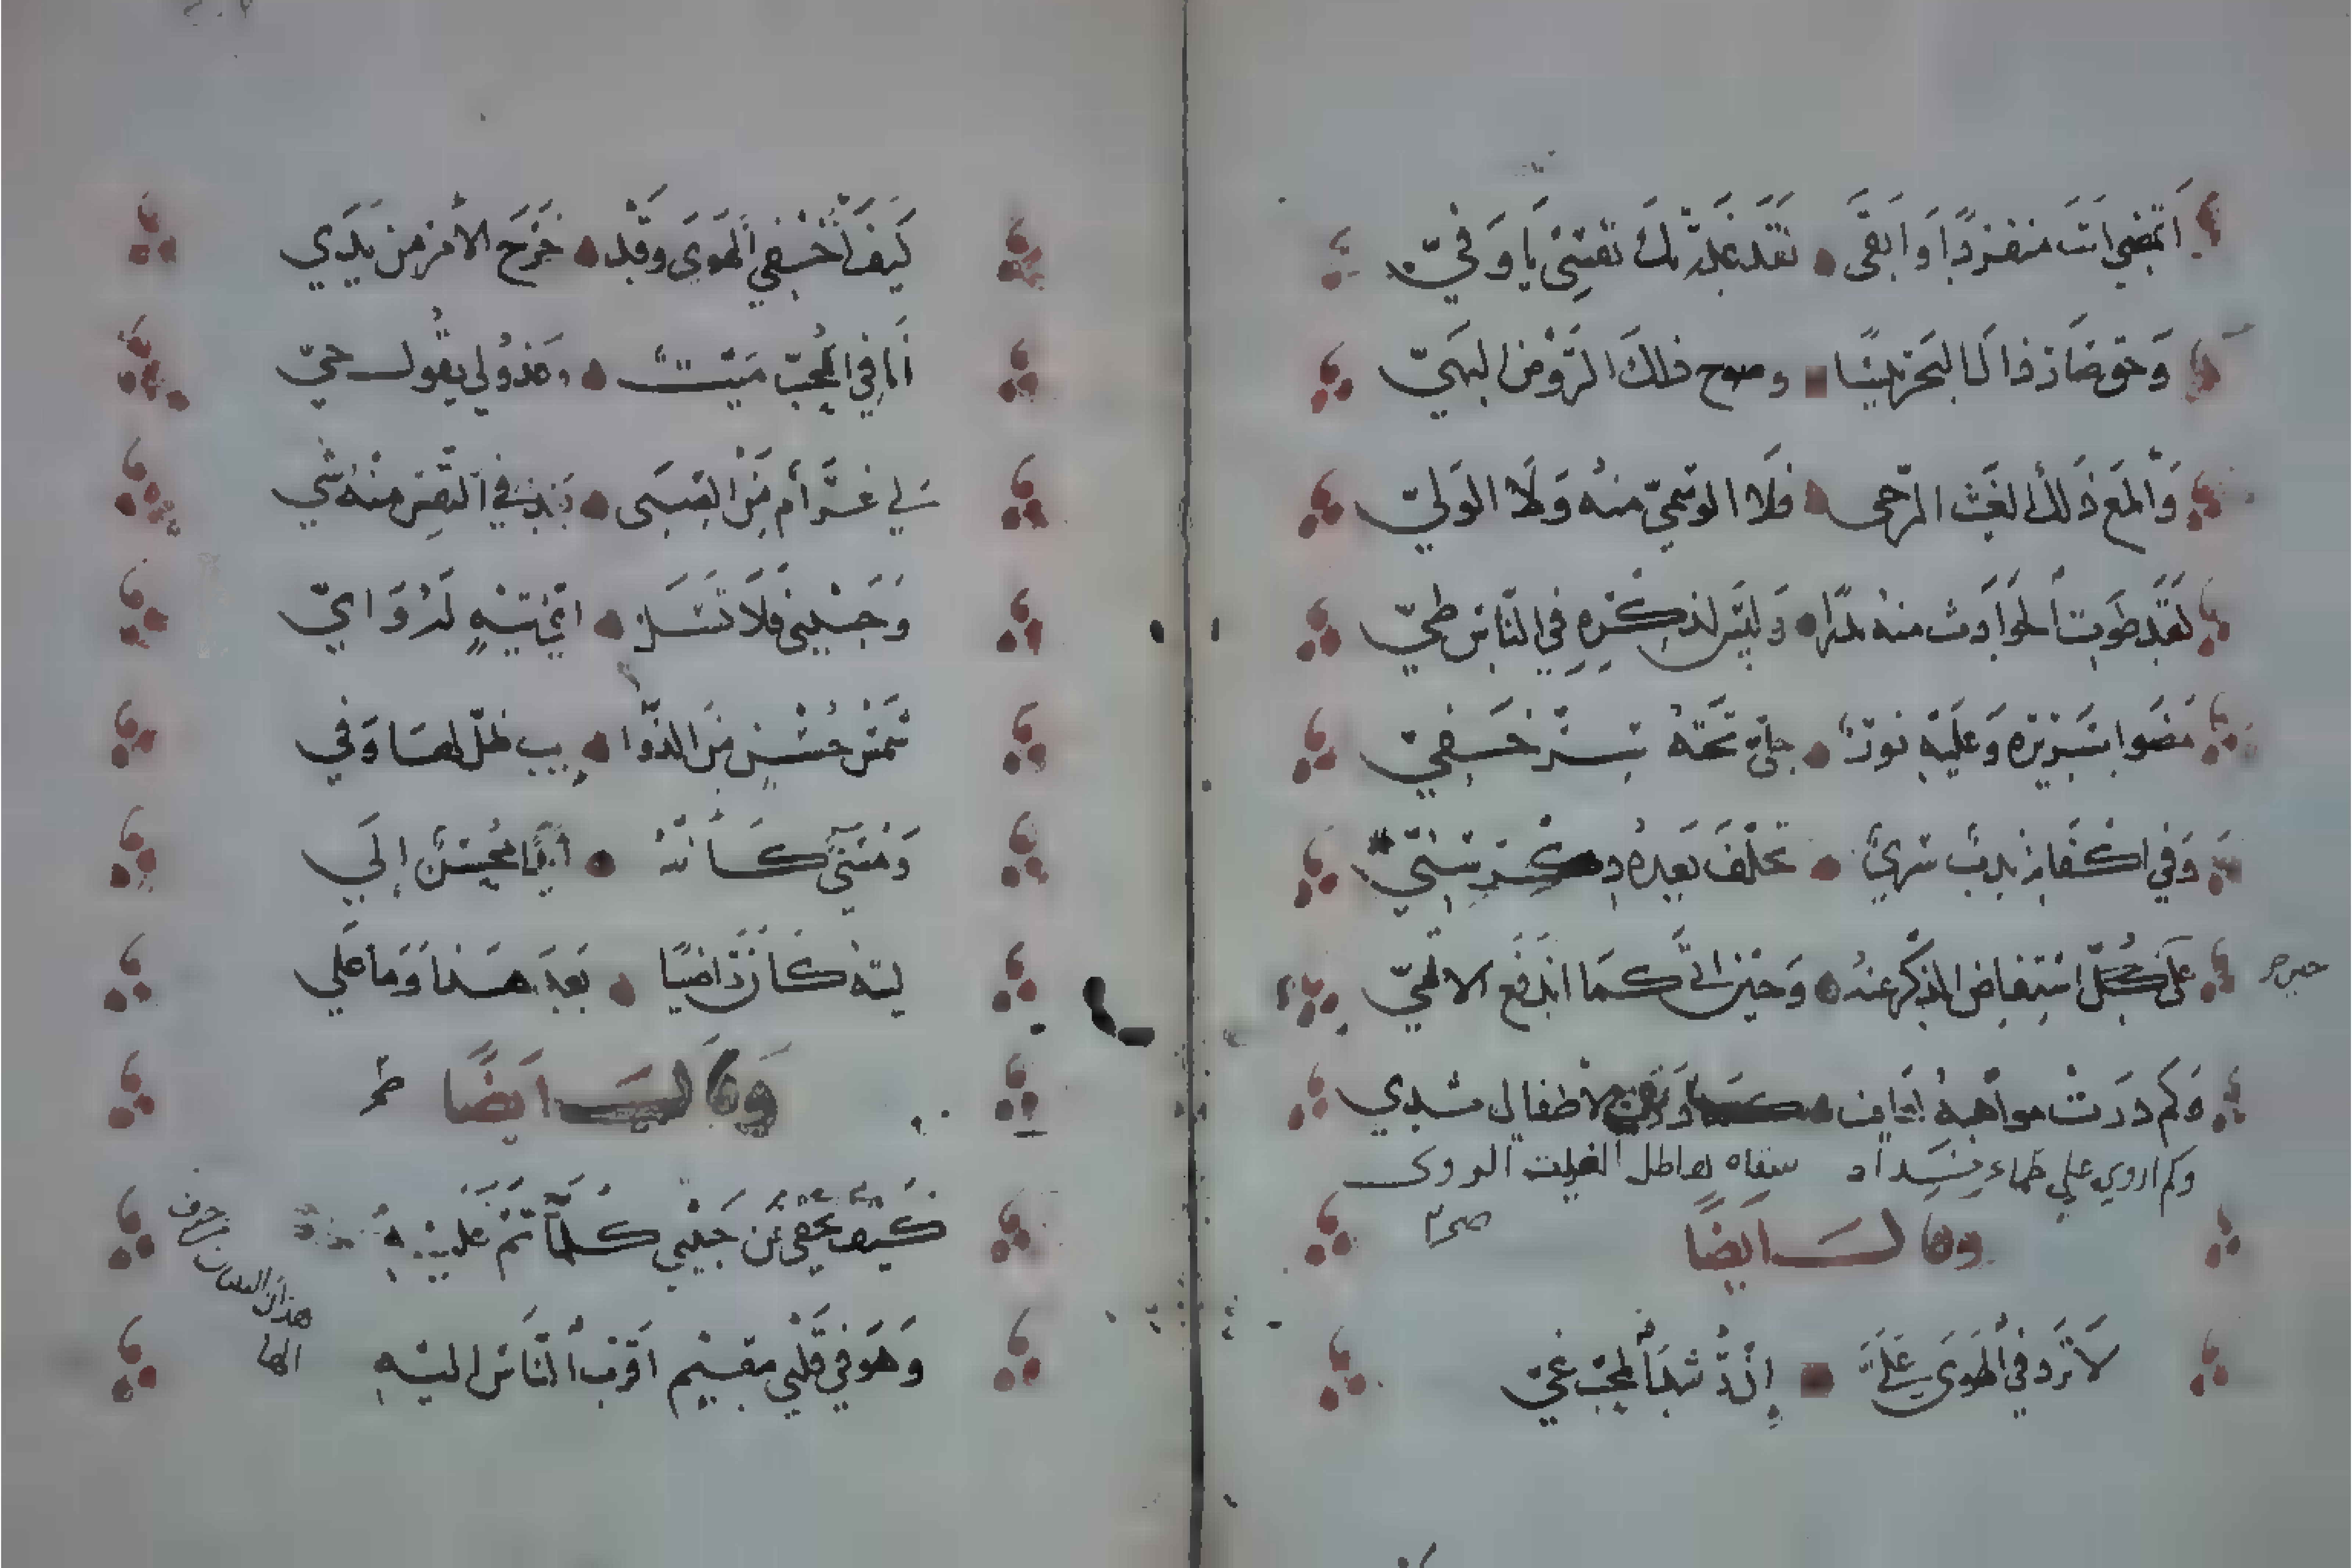 اتمضي انت منفردا وابقى لقد غدرتك نفسي يا وفي
وحق ضاق ذاك البحر حينا وصوح ذلك الروض البهي
واقلع ذلك الغيث المرجى فلا الوسمي منه ولا الولي
لقد طوت الحوادث منه وليس لذكره في الناس طي
مضوا بسريره وعليه نور جلي تحته سر خفي
وفي اكفانه ندب سري تخلف بعده ذكر سني
على كل استفاض الذكر عنه كما اندفع الاتي
وكم درت مواهبه لاطفال ثدي
وكم اروي على ظماء سقاه هاطل الغيث الروى
وقال ايضا
لا ترد في الهوى علي ان رشد المحب غي
كيف اخفي الهوى وقد خرج الامر من يدي
انا في الحب ميت وعذولي يقول حي
لي غرام من الصبى في النفس منه شي
وحبيبي فلا تسل اي تيه لديه واي
شمس حسن من الذوا يب ظل لها وفي
ومسيئ كانه ابدا محسن الي
ليته كان راضيا بعد هذا وما علي
وقال ايضا
كيف يخفى عن حبيبي كلما تم عليه
وهو في قلبي مقيم اقرب الناس اليه
هذان البيتان من حرف
الها